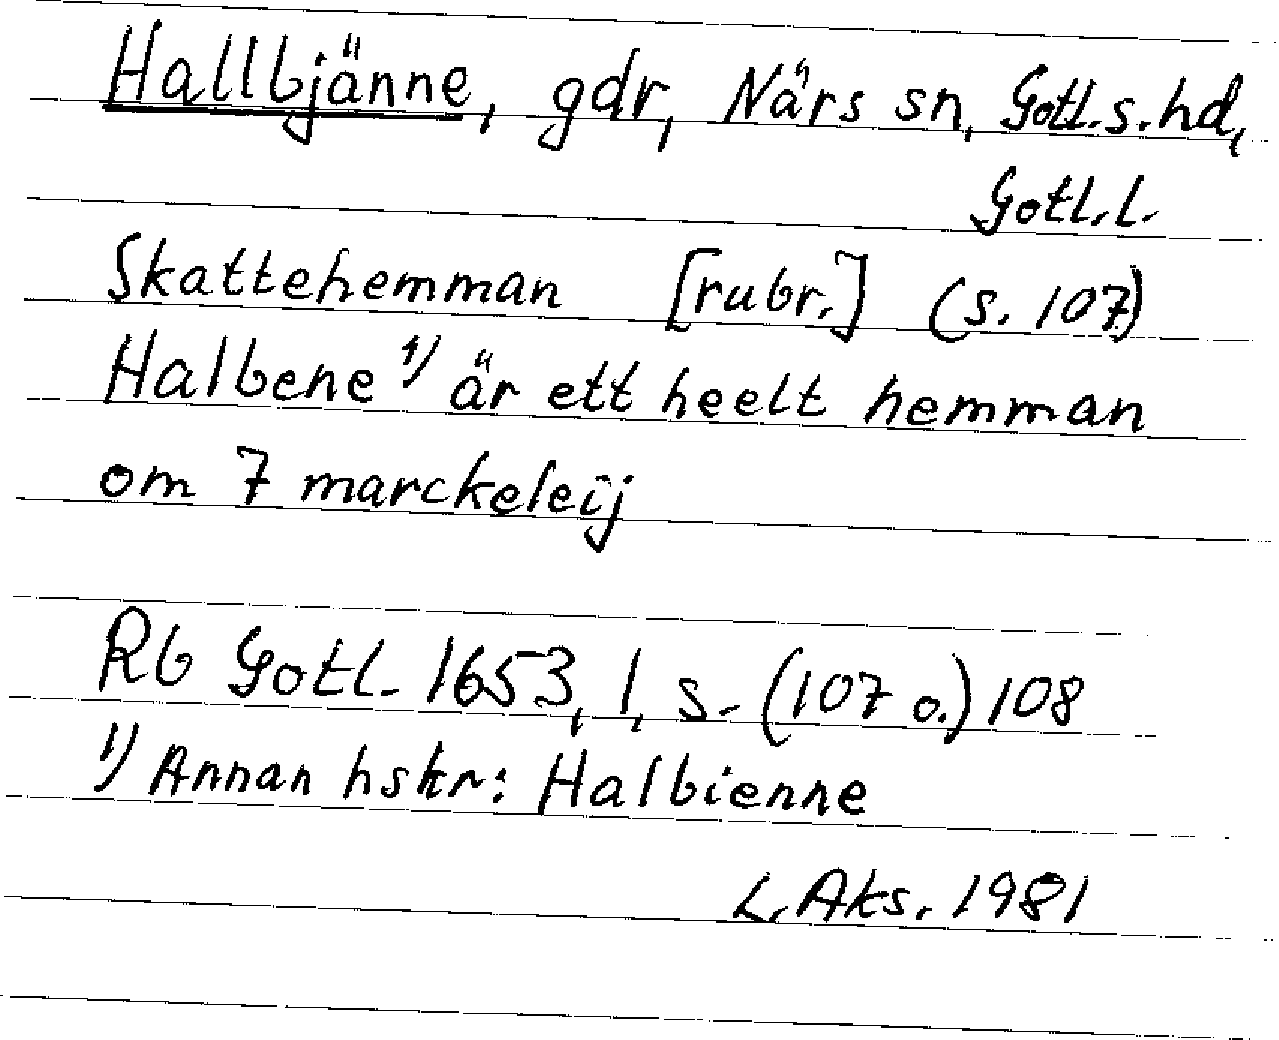 Hallbjänne, gdr, Närs sn, Gotl.s.hd,
Gotl.l.
Skattehemman [rubr.] (s. 107)
Halbene 1) är ett heelt hemman
om 7 marckeleij
Rb Gotl. 1653, 1, s. (107 o.) 108
1) Annan hskr: Halbienne
L. Aks. 1981